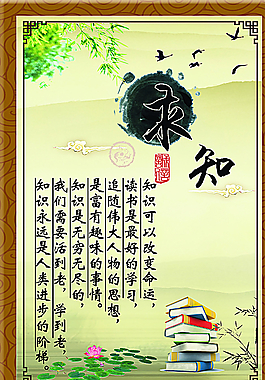 求知
知识可以改变命运,
读书是最好的学习,
追随伟大人物的思想,
是富有趣味的事情。
知识是无穷无尽的,
我们需要活到老,学到老,
知识永远是人类进步的阶梯。